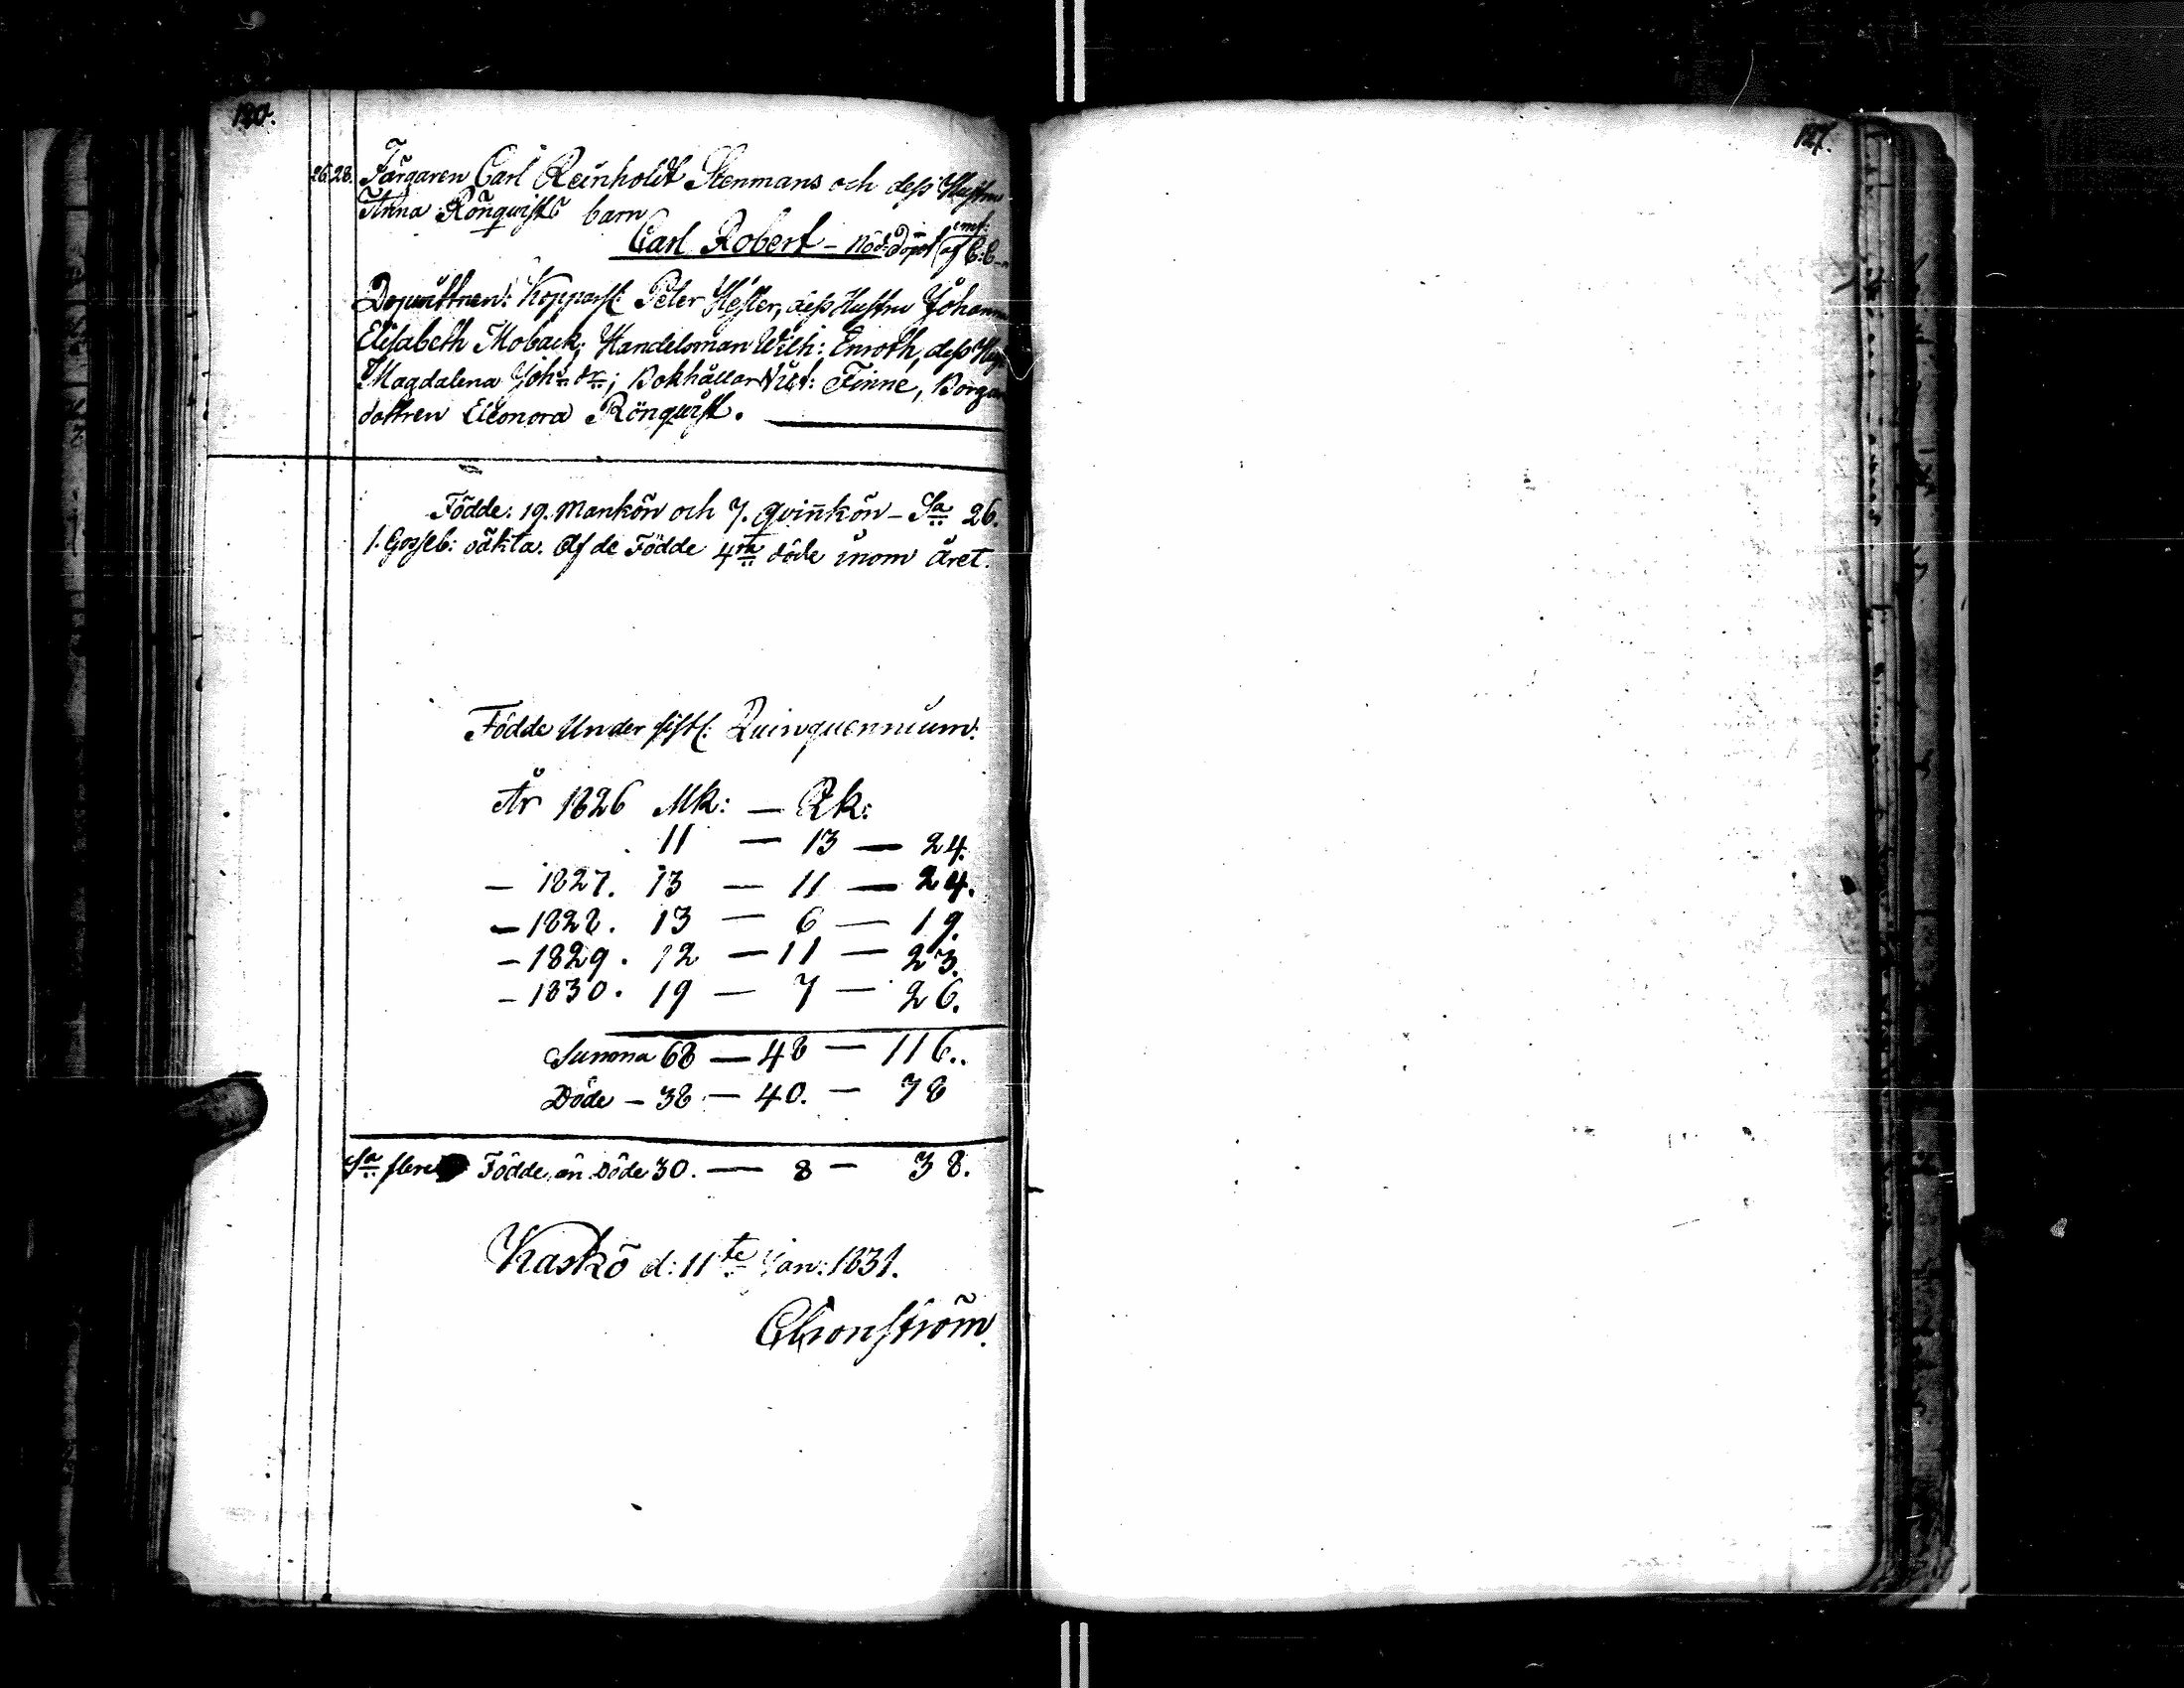 120.
26. 28. Färgaren Carl Reinholdt Stenmans och dess Hustru
Anna Rönqvists barn
Carl Robert – Nöd-Döpt emt: af C: C
Dopvittnen: Kopparsl: Peter Hesler, dess Hustru Johanna
Elisabeth Moback; Handelsman Wilh: Enroth, dess Hust:
Magdalena Johs dr; Bokhållar Finne, Borgar
dottren Eleonora Rönqvist.
Födde: 19. Mankön och 7. qvinkön – Sa 26.
1. Gosseb: oäkta. Af de Födde 4ra döde inom året.
Födde Under sistl: Quinquennium:
År 1826 Mk: — Qk:
11 — 13 — 24.
– 1827. 13 — 11 — 24.
– 1828. 13 — 6 — 19.
– 1829. 12 — 11 — 23.
– 1830. 19 — 7 — 26.
Summa 68 — 48 — 116.
Döde – 38 — 40. — 78
Sa flere Födde än Döde 30. — 8 — 38.
Kaskö d: 11te Jan: 1831.
Cronström.
127.